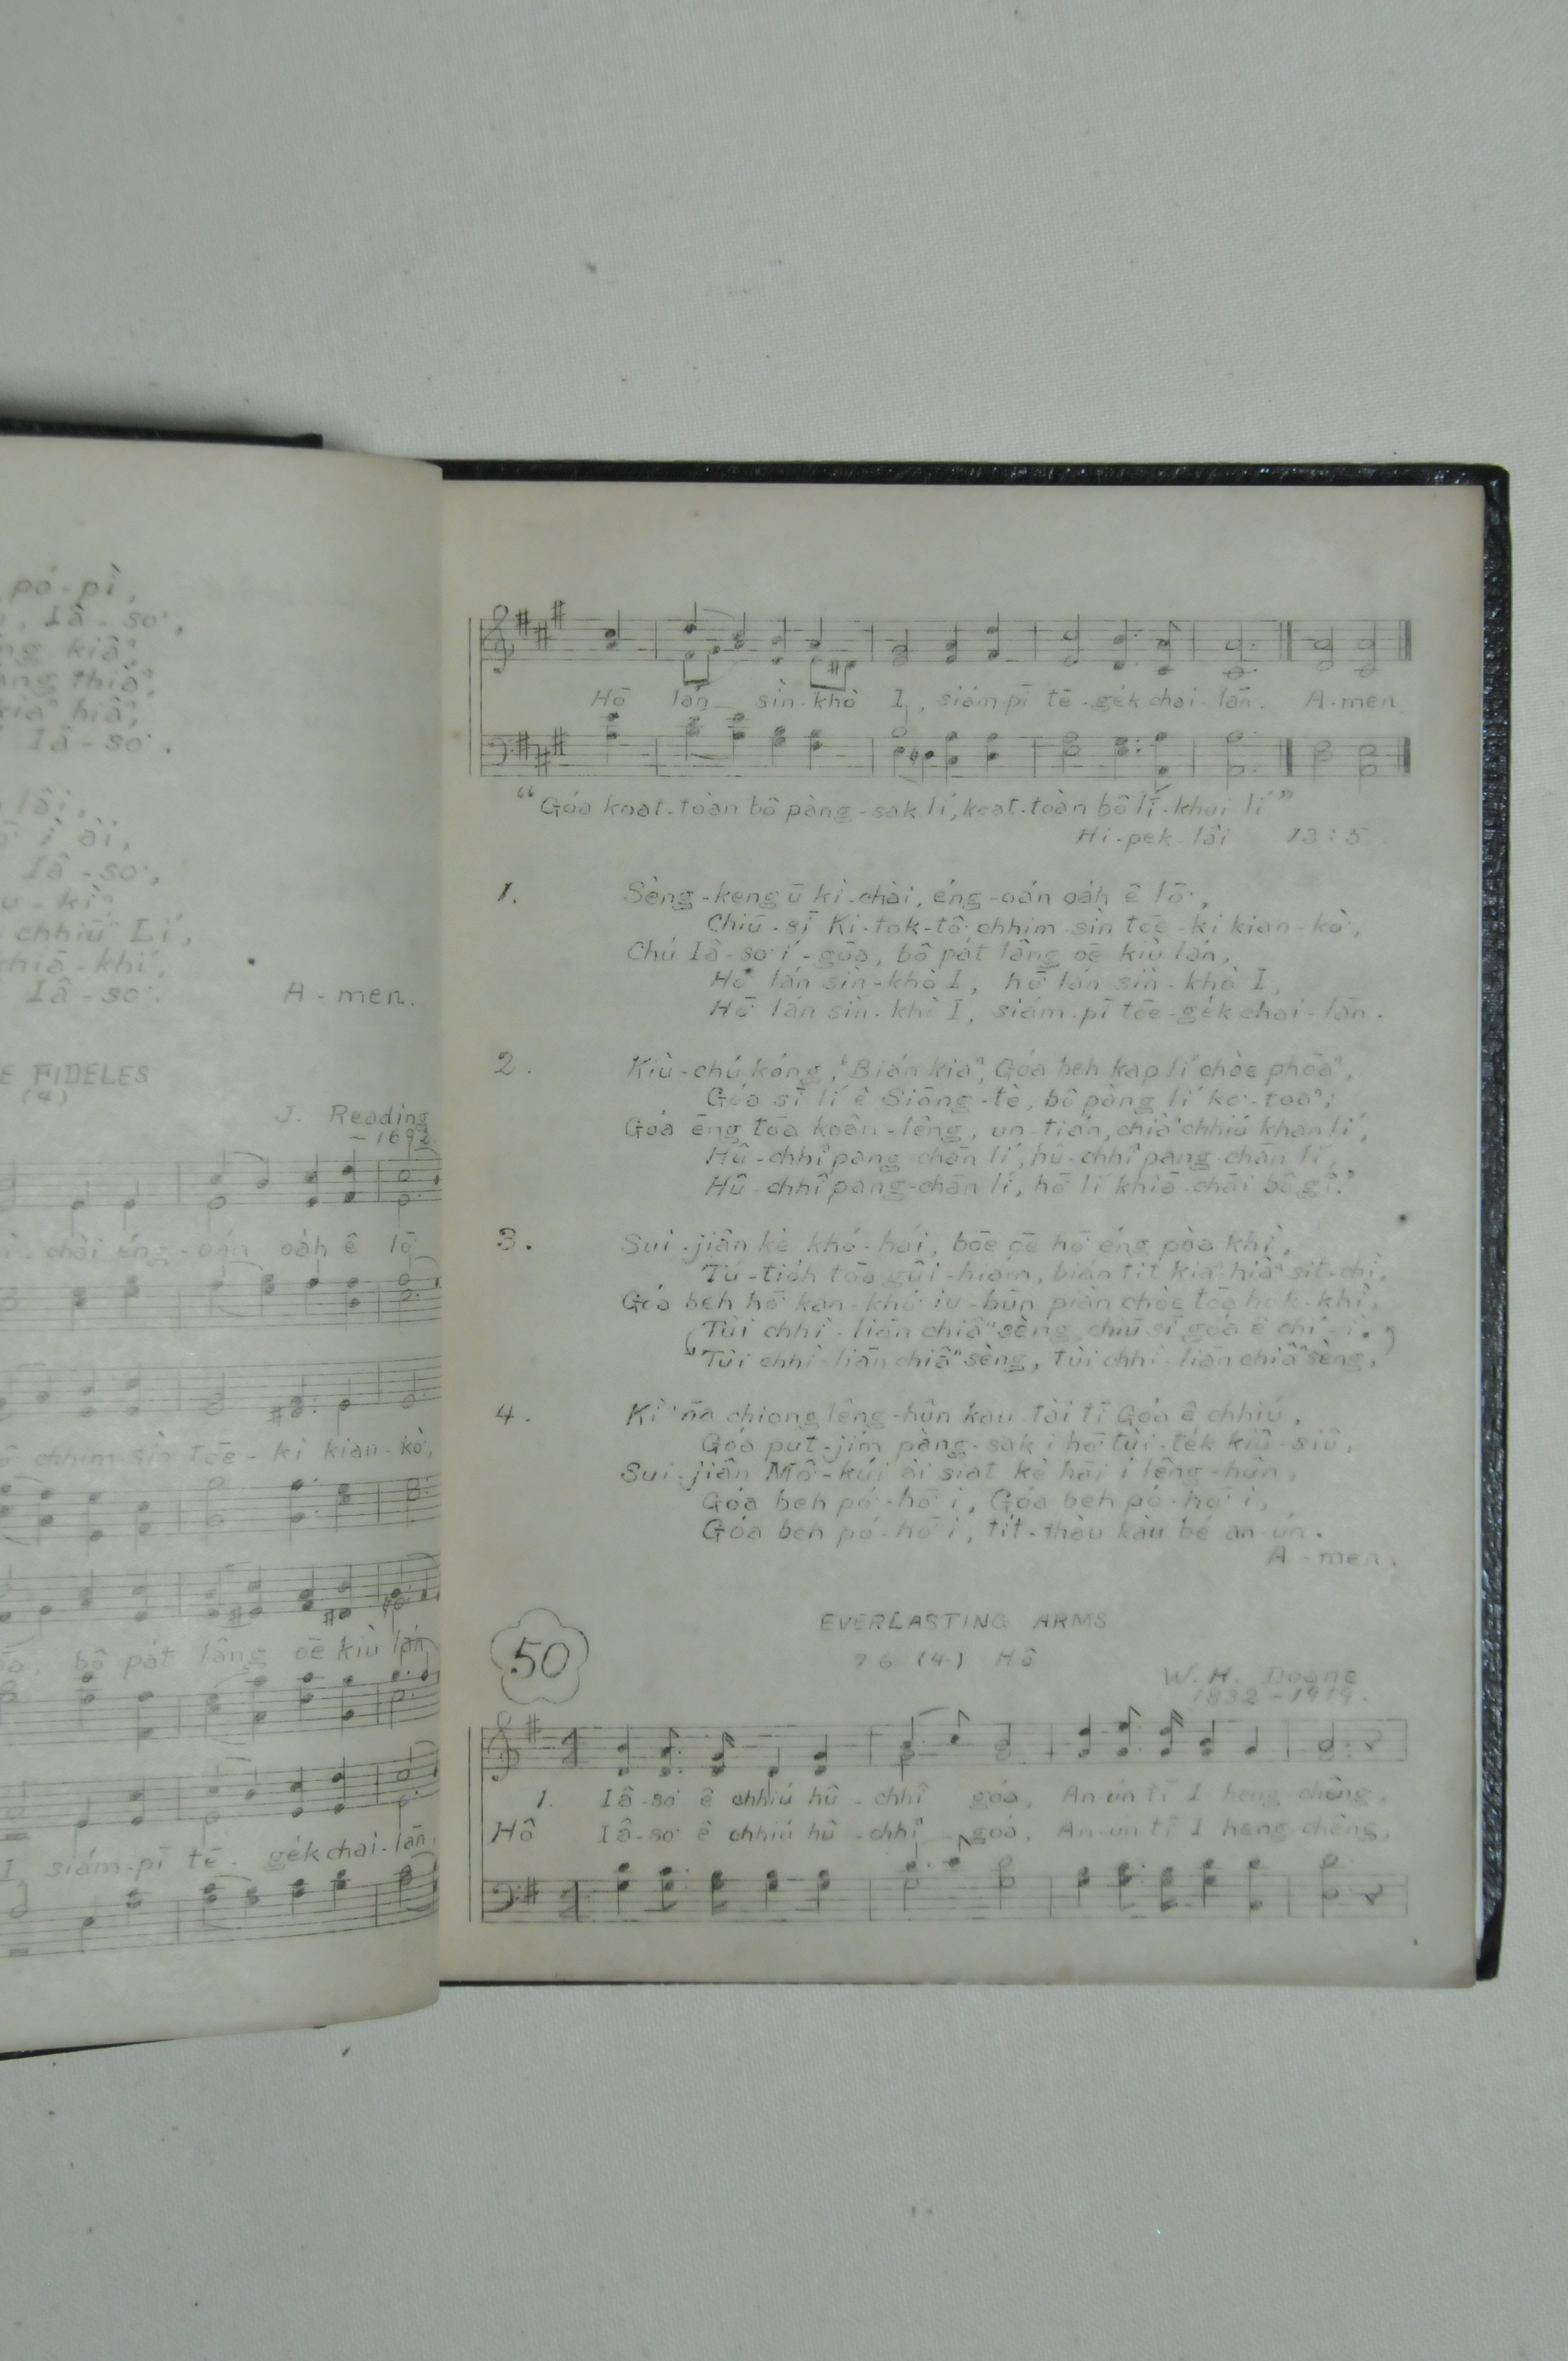 pó-pì,
Iâ-so͘,
kiâⁿ,
thiàⁿ,
hiâⁿ,
Iâ-so͘.
lâi,
ì ài,
Iâ-so͘,
chhiú Lí,
khiā-khí,
Iâ-so͘.
A-men.
E FIDELES
(4)
J. Reading
-1692
chài éng-oán oáh ê lō͘
chhim sìn tōe-ki kian-kò͘,
bô pát lâng oē kiù lán,
I, siám-pī tē-gék chai-lān.
Hō͘ lán sìn-khò I, siám-pī tē-gék chai-lān. A-men
“Góa koat-toàn bô pàng-sak lí, koat-toàn bô lī-khui lí”
Hi-pek-lâi 13:5
1. Sèng-keng ū kì-chài, éng-oán oáh ê lō͘,
Chiū-sī Ki-tok-tô͘ chhim-sìn tōe-ki kian-kò͘,
Chú Iâ-so͘ í-gōa, bô pát lâng oē kiù lán,
Hō͘ lán sìn-khò I, hō͘ lán sìn-khò I,
Hō͘ lán sìn-khò I, siám-pī tōe-gék chai-lān.
2. Kiù-chú kóng, “Bián kiaⁿ, Góa beh kap lí chòe phōaⁿ,
Góa sī lí ê Siōng-tè, bô pàng lí ko͘-toaⁿ;
Góa ēng tōa koân-lêng, un-tián, chiàⁿ chhiú khan lí,
Hû-chhî pang-chān lí, hû-chhî pang-chān lí,
Hû-chhî pang-chān lí, hō͘ lí khiā-chāi bô gî.”
3. Sui-jiân kè khó͘-hái, bōe oē hō͘ éng pòa khì,
Tú-tióh tōa gûi-hiám, bián tit kiaⁿ-hiâⁿ sit-chì,
Góa beh hō͘ kan-khó͘ iu-būn piàn chòe tōa hok-khì,
(Tùi chhì-liān chiâⁿ sèng chiū sī góa ê chí-ì.)
“Tùi chhì-liān chiâⁿ sèng, tùi chhì-liān chiâⁿ sèng,
4. chiong lêng-hûn kau-tài tī Góa ê chhiú,
Góa put-jím pàng-sak i hō͘ tùi-ték kiû-siû,
Sui-jiân Mô͘-kúi ài siat kè hāi i lêng-hûn,
Góa beh pó-hō͘ i, Góa beh pó-hō͘ i,
Góa beh pó-hō͘ i, tít-thàu kàu bé an-ún.
A-men.
EVERLASTING ARMS
50
7 6 (4) Hô
W. H. Doane
1832-1919.
1. Iâ-so͘ ê chhiú hû-chhî góa, An-ún tī I heng-chêng,
Hô Iâ-so͘ ê chhiú hû-chhî góa, An-ún tī I heng-chêng,